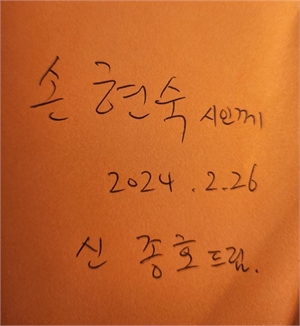 손 현숙 시인께
2024. 2. 26
신 종호 드림.